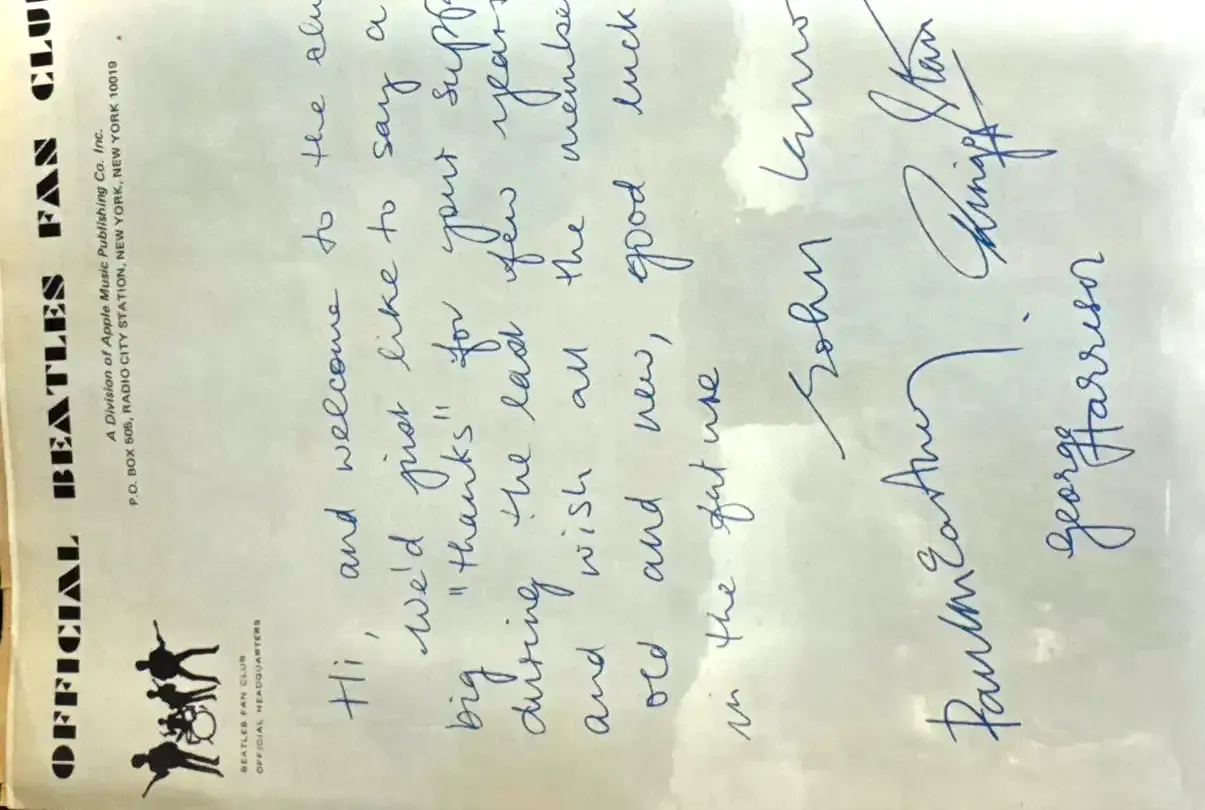 OFFICIAL BEATLES FAN CLU
A Division of Apple Music Publishing Co. Inc.
P.O. BOX 505, RADIO CITY STATION, NEW YORK, NEW YORK 10019
BEATLES FAN CLUB
OFFICIAL HEADQUARTERS
Hi, and welcome to the clu
We'd just like to say a
big "thanks" for your supp
during the last few years
and wish all the membe
old and new, good luck
in the future
John Lenno
Paul McCartney
Ringo Starr
George Harrison